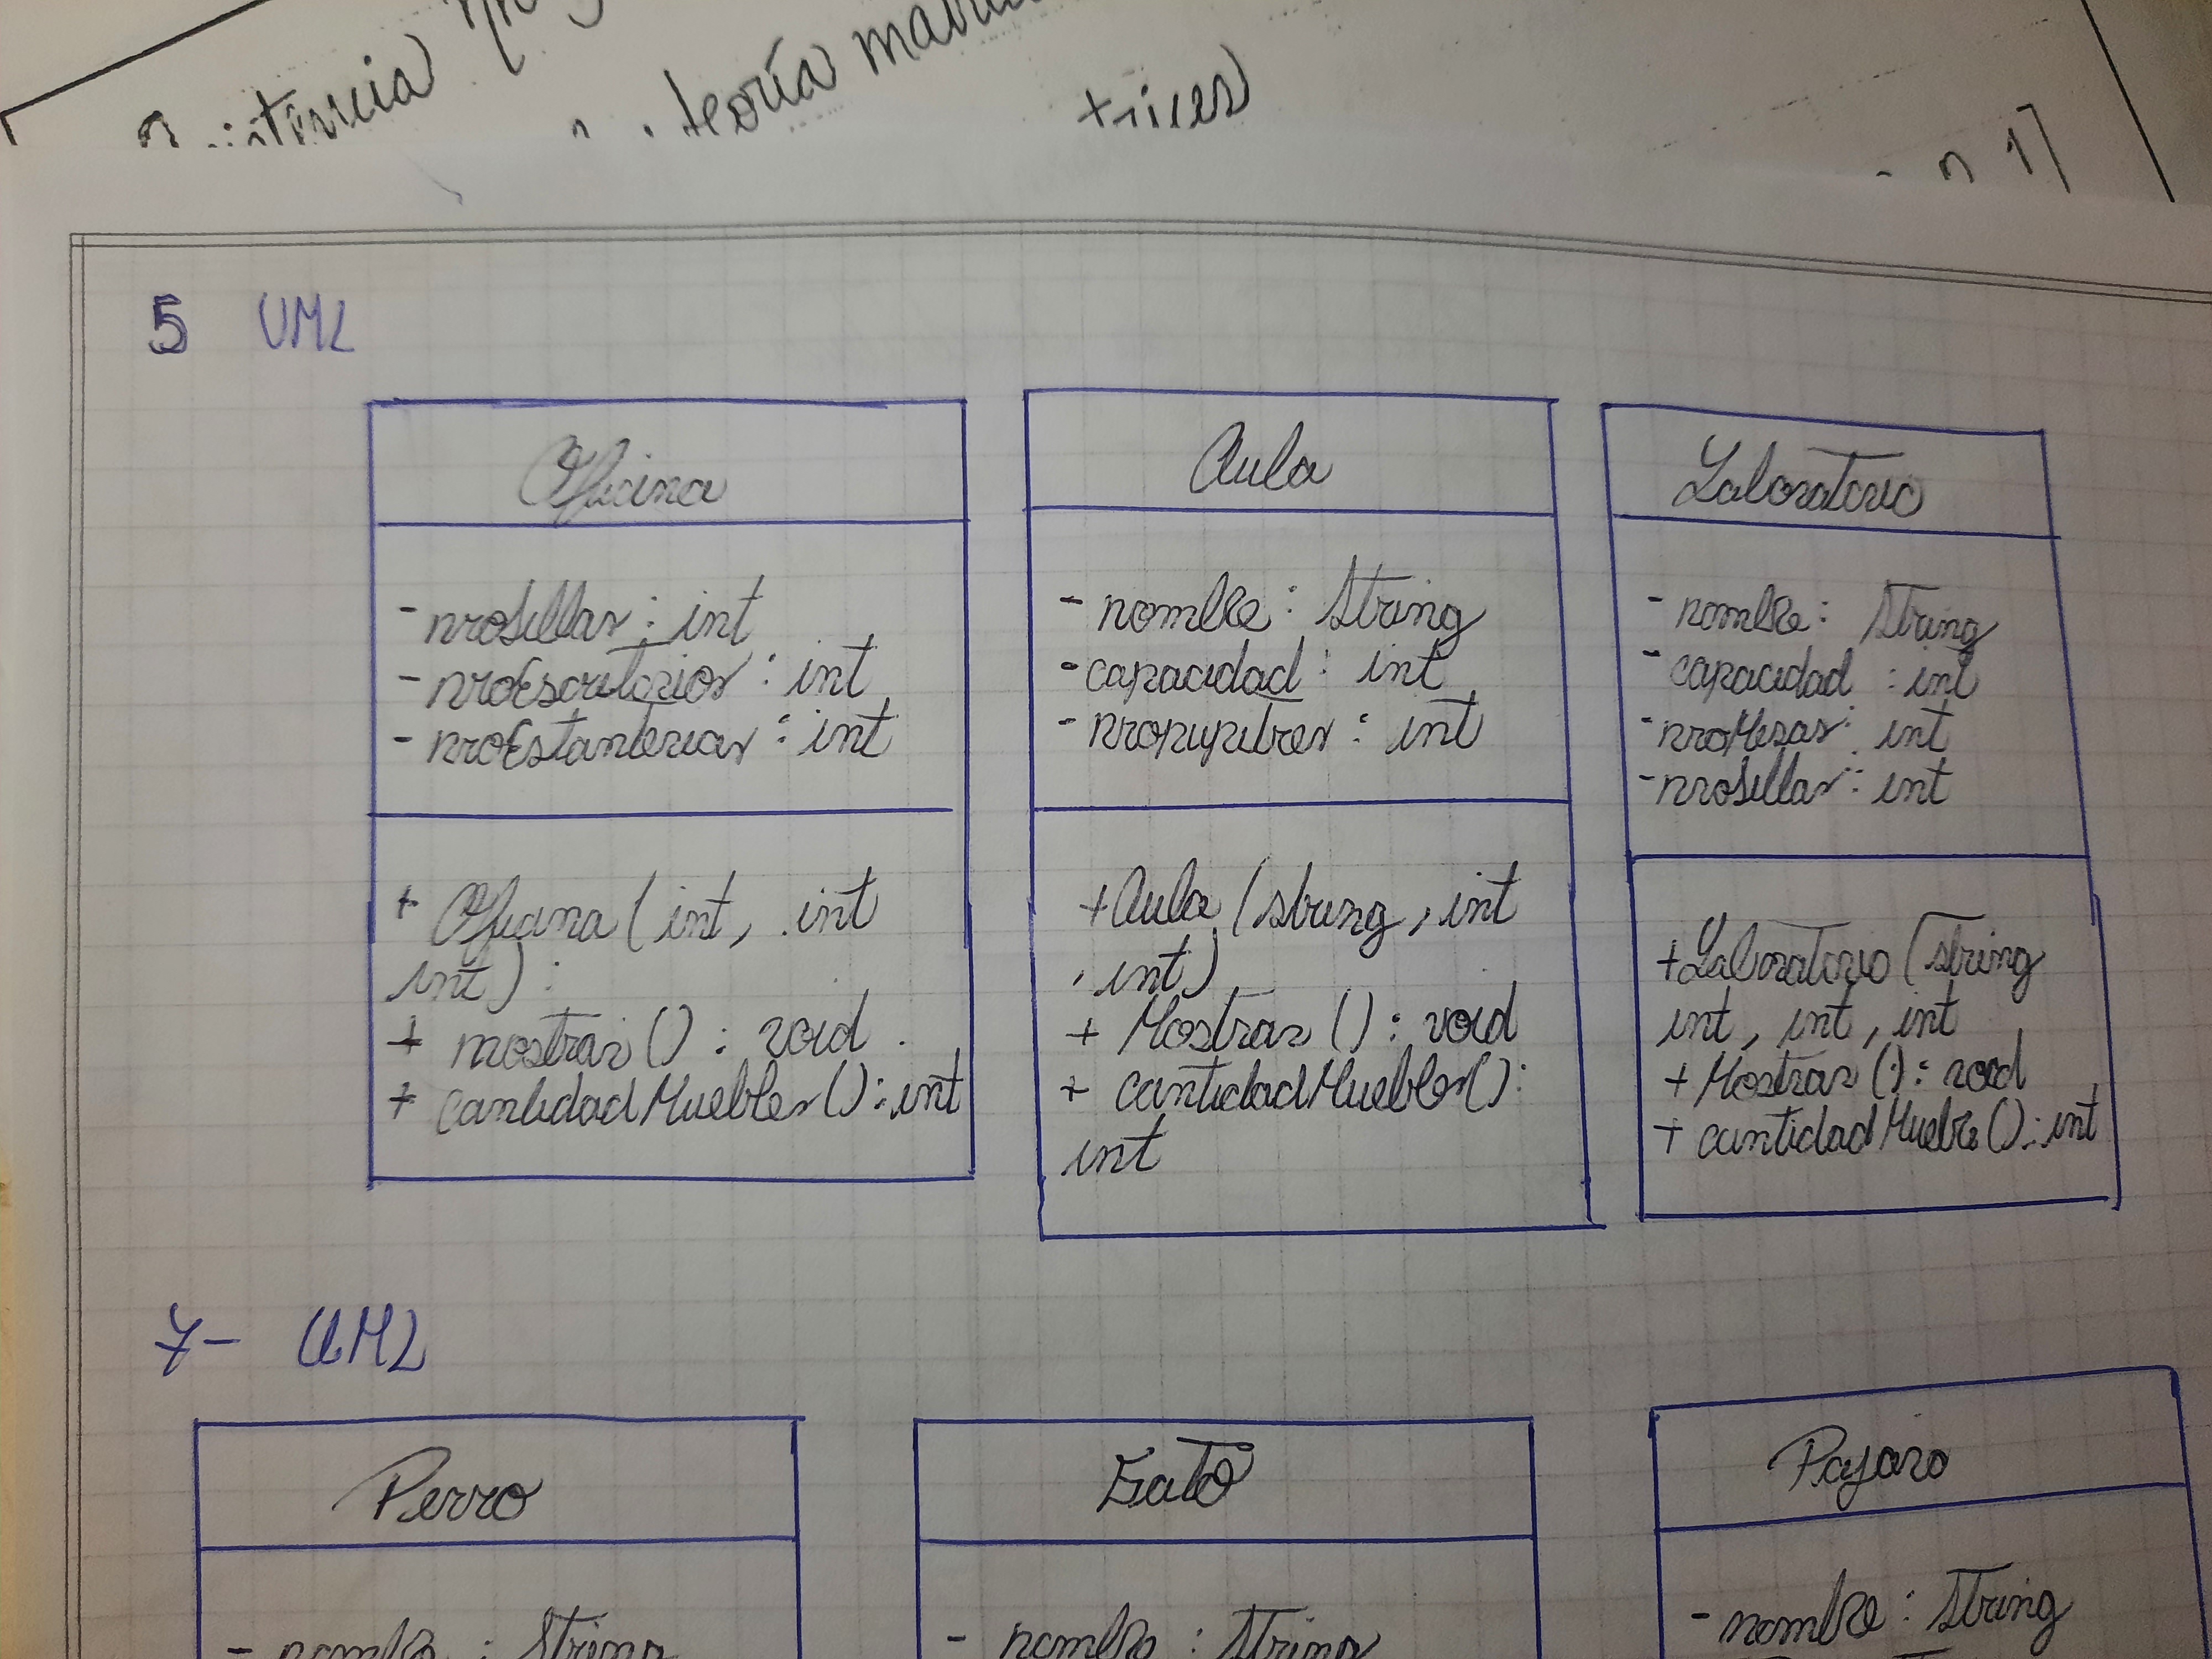 5 UML
Oficina
- nrosillas : int
- nroEscritorios : int
- nroEstantenias : int
+ Oficina (int, int
int) :
+ mostrar () : void
+ CantidadMuebles () : int
Aula
- nombre : String
- capacidad : int
- nropupitres : int
+ Aula (string, int
, int)
+ Mostrar () : void
+ cantidadMuebles() :
int
Laboratorio
- nombre : String
- capacidad : int
- nroMesas : int
- nrosillas : int
+ Laboratorio (string
int, int, int
+ Mostrar () : void
+ cantidadMuebles () : int
UML
Perro
- nombre : String
Gato
- nombre : String
Pajaro
- nombre : String